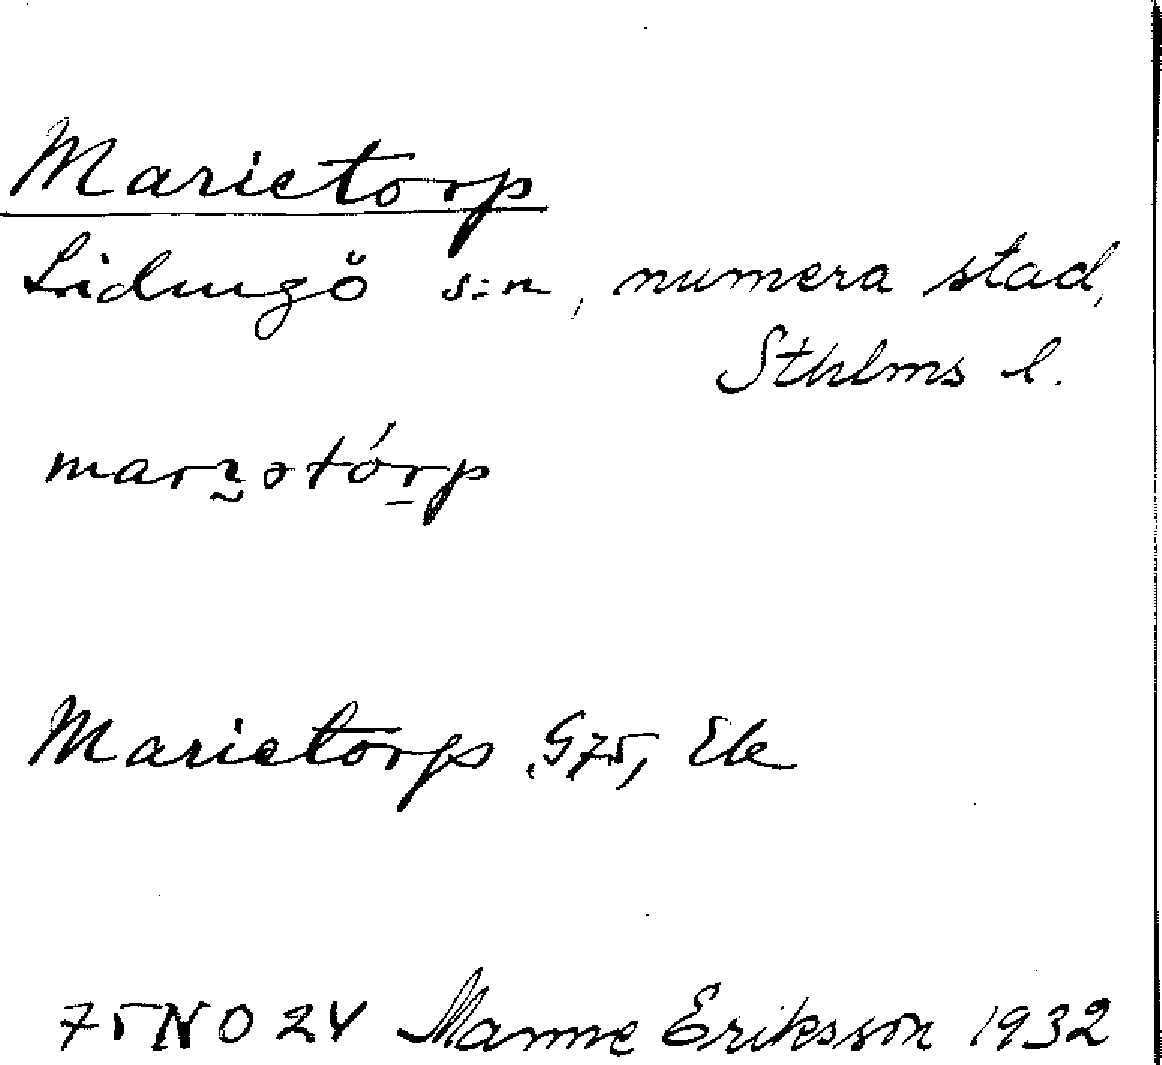 Marietorp
Lidingö s:n, numera stad,
Sthlms l.
Marietorp G75, Ek
75 NO 24 Manne Eriksson 1932